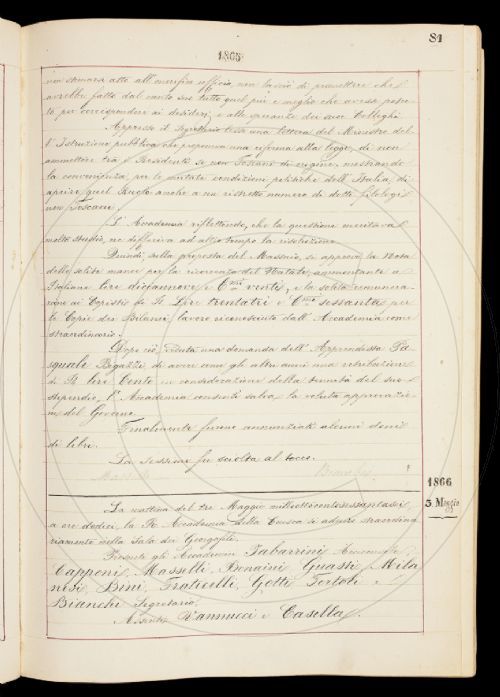 81
1865
non stimarsi atto all'onorifico ufficio, non lasciò di promettere che
avrebbe fatto dal canto suo tutto quel più e meglio che avesse potu-
to per corrispondere ai desideri e alle speranze dei suoi Colleghi.
Appresso il Segretario lesse una lettera del Ministro del-
l'Istruzione pubblica che proponeva una riforma alla legge, di non
ammettere tra i Residenti se non Toscani di origine, mostrando
la convenienza, per le mutate condizioni politiche dell'Italia, di
aprire quel Ruolo anche a un ristretto numero di dotti filologi
non Toscani.
L'Accademia riflettendo, che la questione meritava
molto studio, ne differiva ad altro tempo la risoluzione.
Quindi, sulla proposta del Massaio, si approvò la Nota
delle solite mance per la ricorrenza del Natale, ammontante a
Italiane lire diciannove e C.mi venti, e la solita remunera-
zione al Copista di It. Lire trentatrè e C.mi sessanta per
le Copie dei Bilanci, lavoro riconosciuto dall'Accademia come
straordinario.
Dopo ciò, veduta una domanda dell'Apprendista Pa-
squale Bigazzi, di avere come gli altri anni una retribuzione
di It. lire Cento in considerazione della tenuità del suo
stipendio, l'Accademia consentì salva la voluta approvazio-
ne del Governo.
Finalmente furono annunziati alcuni doni
di libri.
La sessione fu sciolta al tocco.
1866
3 Maggio
La mattina del tre Maggio milleottocentosessantasei,
a ore dodici, la R. Accademia della Crusca si adunò straordina-
riamente nella Sala dei Georgofili.
Presenti gli Accademici Tabarrini Arciconsolo,
Capponi, Masselli, Bonaini, Guasti, Mila-
nesi, Bini, Fraticelli, Gotti, Tortoli e
Bianchi Segretario.
Assenti Vannucci e Casella.